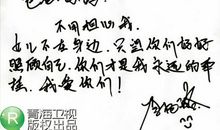 不用担心我。
女儿不在身边，只当你们好好
照顾自己，你们才是我永远的牵
挂，我爱你们！
青海卫视
版权出品